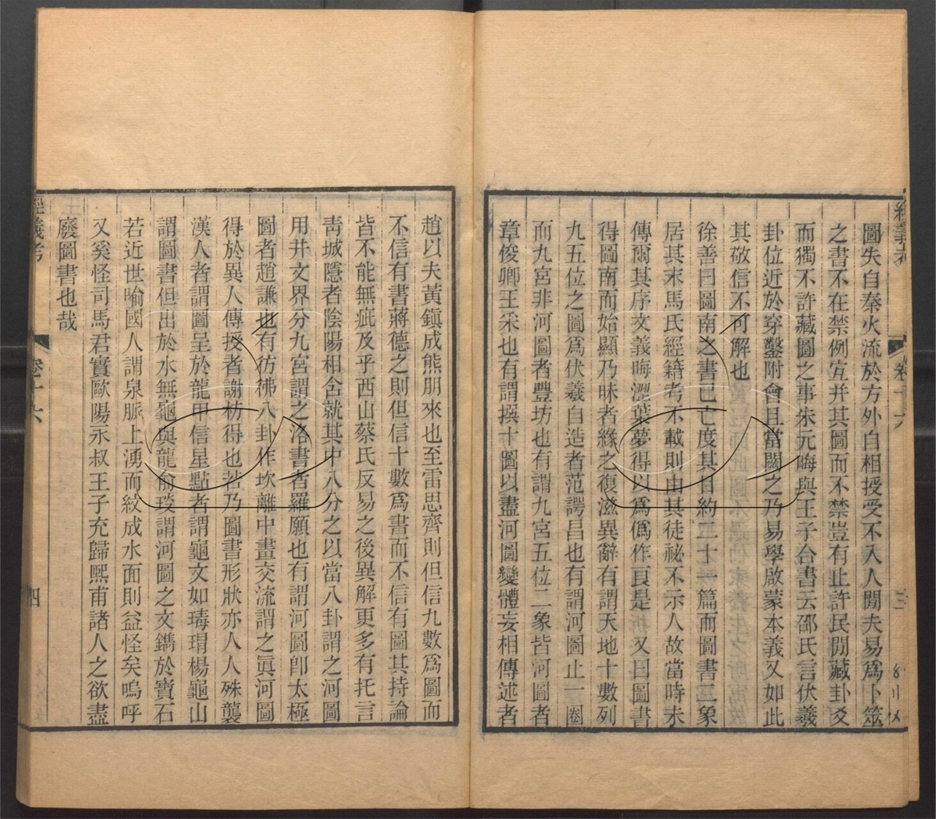 圖失自秦火流於方外自相授受不入人間夫易爲卜筮
之書不在禁例宜并其圖而不禁豈有止許民間藏卦爻
而獨不許藏圖之事朱元晦與王子合書云邵氏言伏羲
卦位近於穿鑿附會且當闕之乃易學啟蒙本義又如此
其敬信不可解也
徐善曰圖南之書已亡度其目約二十一篇而圖書二象
居其末馬氏經籍考不載則由其徒祕不示人故當時未
傳爾其序文義晦澀葉夢得以爲僞作良是 又曰圖書
得圖南而始顯乃昧者緣之復滋異辭有謂天地十數列
九五位之圖爲伏羲自造者范諤昌也有謂河圖止一圈
而九宮非河圖者豐坊也有謂九宮五位二象皆河圖者
章俊卿王采也有謂撰十圖以盡河圖變體妄相傳述者
經義考 卷十六 三
趙以夫黃鎮成熊朋來也至雷思齊則但信九數爲圖而
不信有書蔣德之則但信十數爲書而不信有圖其持論
皆不能無疵及乎西山蔡氏反易之後異解更多有托言
靑城隱者陰陽相含就其中八分之以當八卦謂之河圖
用井文界分九宮謂之洛書者羅願也有謂河圖卽太極
圖者趙謙也有彷彿八卦作坎離中畫交流謂之眞河圖
得於異人傳授者謝枋得也若乃圖書形狀亦人人殊襲
漢人者謂圖呈於龍甲信星點者謂龜文如瑇瑁楊龜山
謂圖書但出於水無龜與龍俞琰謂河圖之文鐫於寶石
若近世喻國人謂泉脈上湧而紋成水面則益怪矣嗚呼
又奚怪司馬君實歐陽永叔王子充歸熙甫諸人之欲盡
廢圖書也哉
經義考 卷十六 四